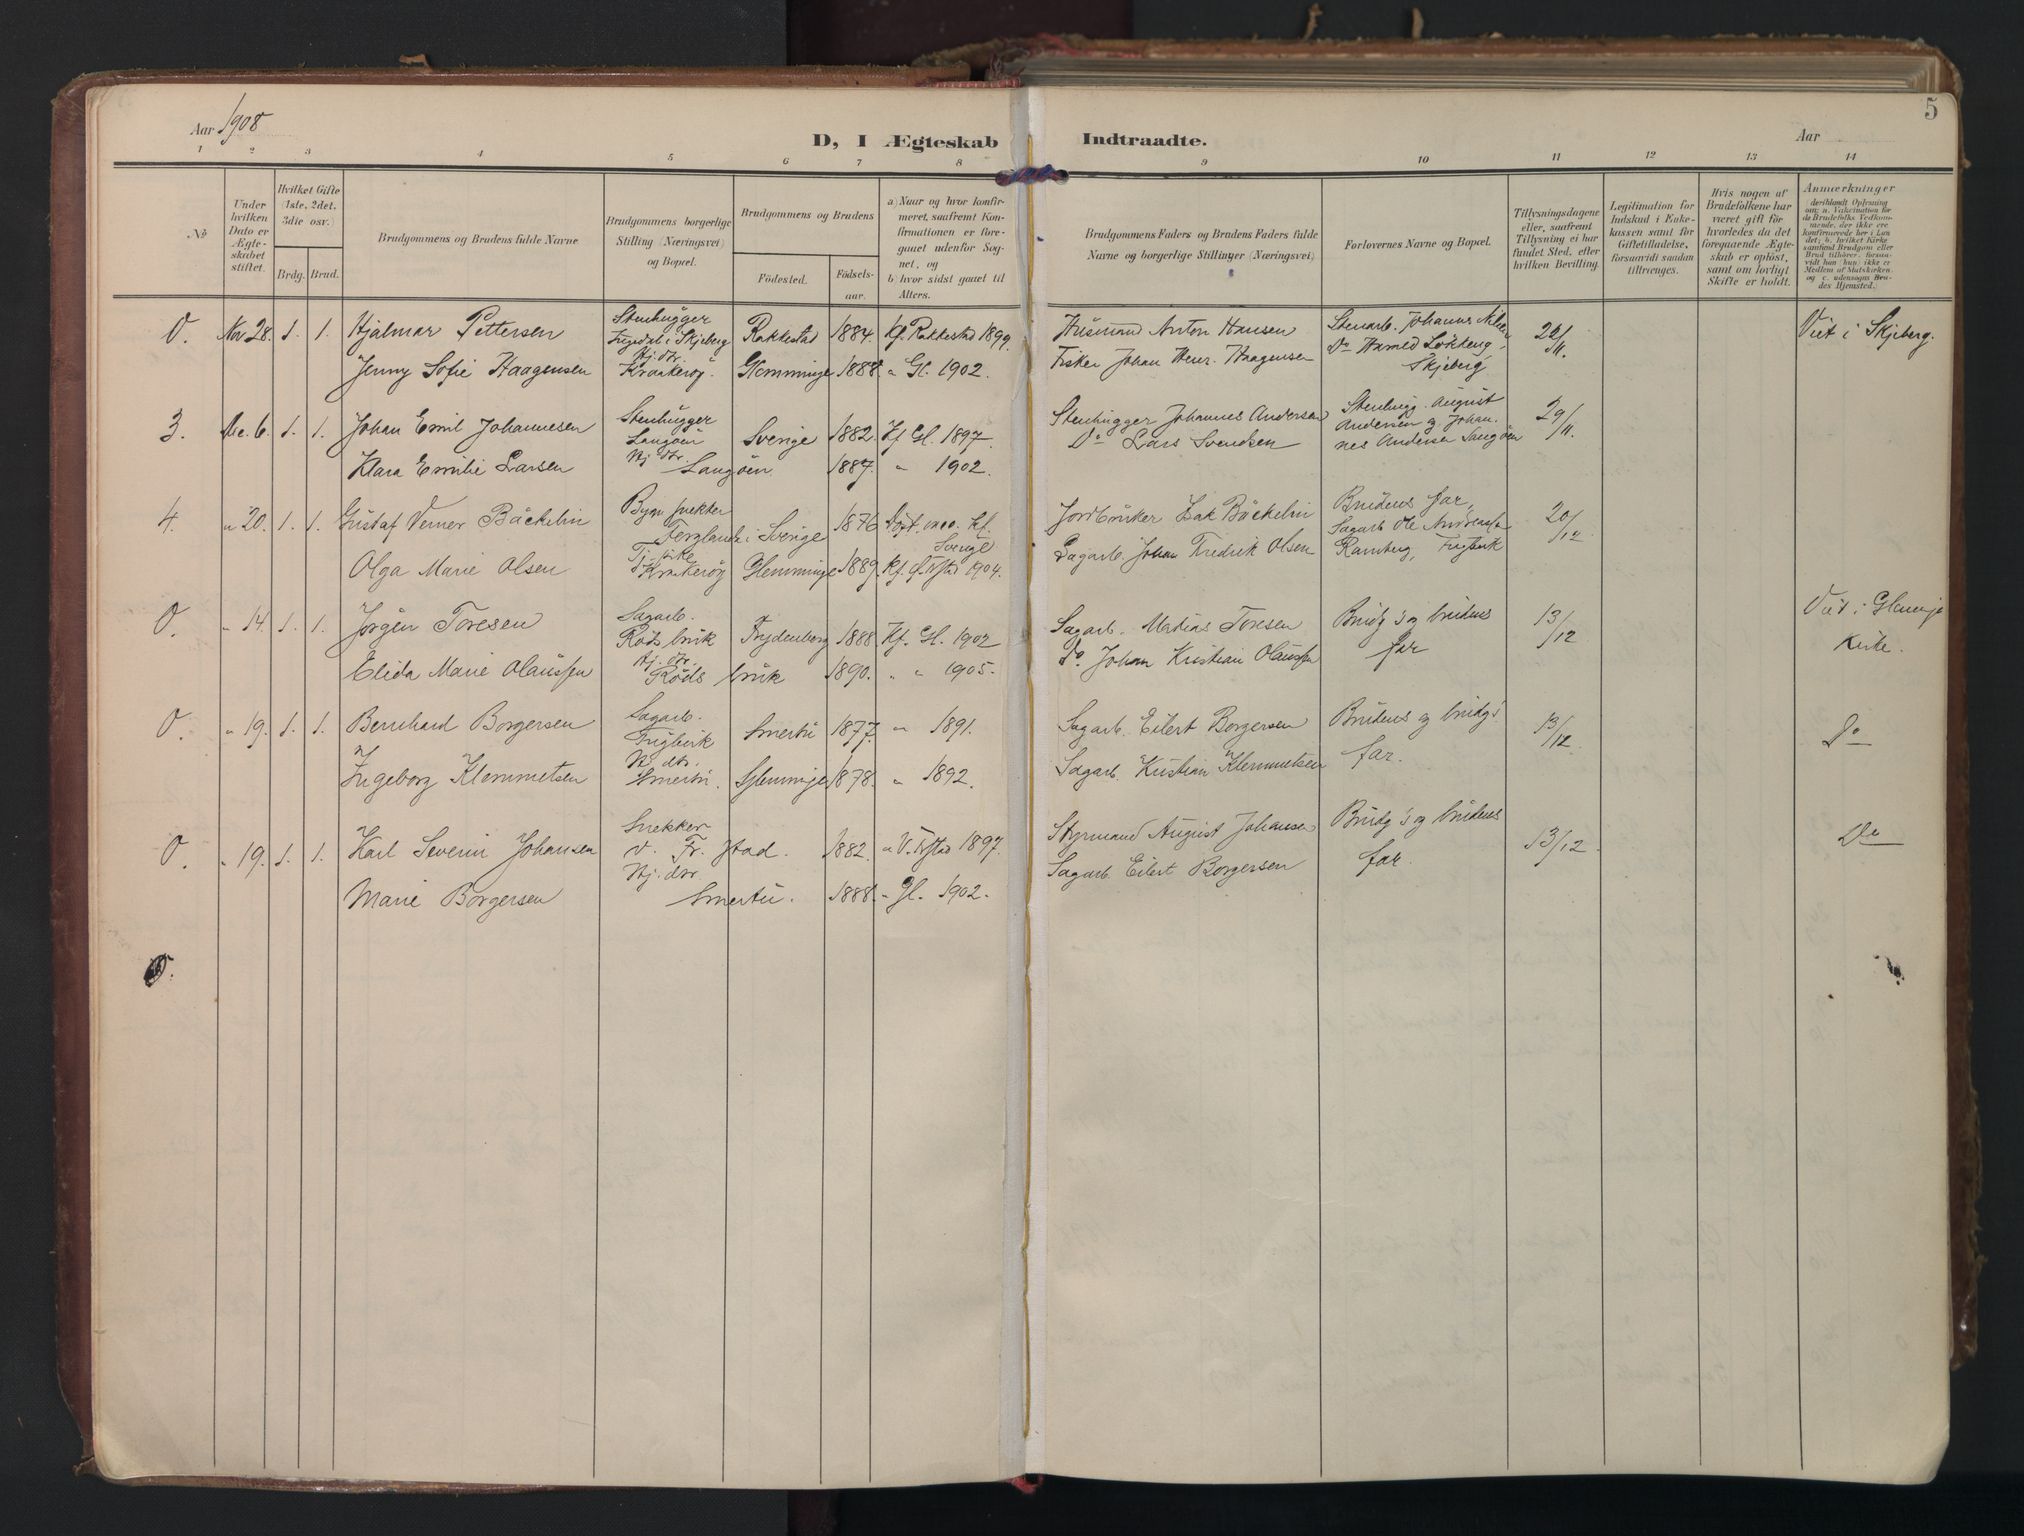 5
Aar 1908
D, I Ægteskab Indtraadte.
Aar
1 2 3 4 5 6 7 8 9 10 11 12 13 14
No
Under hvilken Dato er Ægteskabet stiftet.
Hvilket Gifte (1ste, 2det, 3die osv.)
Brdg. Brud.
Brudgommens og Brudens fulde Navne
Brudgommens borgerlige Stilling (Næringsvei) og Bopæl.
Brudgommens og Brudens
Födested. Födselsaar.
a) Naar og hvor konfirmeret, saafremt Konfirmationen er foregaaet udenfor Sognet, og
b) hvor sidst gaaet til Alters.
Brudgommens Faders og Brudens Faders fulde Navne og borgerlige Stillinger (Næringsvei)
Forlovernes Navne og Bopæl.
Tillysningsdagene eller, saafremt Tillysning ei har fundet Sted, efter hvilken Bevilling.
Legitimation for Indskud i Enkekassen samt for Giftetilladelse, forsaavidt saadan tiltrænges.
Hvis nogen af Brudefolkene har været gift för hvorledes da det foregaaende Ægteskab er oplöst, samt om lovligt Skifte er holdt.
Anmærkninger
0. Nov 28. 1. 1. Hjalmar Pettersen Stenhugger i Skjeberg Rakkestad 1884. Kf. Rakkestad 1899. Husmand Anton Hansen Stenarb. Johannes Nilsen Viet i Skjeberg.
Jenny Sofie Haagensen Hj. dtr. Kraakerøy. Glemminge 1888. " Gl. 1902. Fisker Johan Henr. Haagensen Do Skjeberg
3. Dec. 6. 1. 1. Johan Emil Johannesen Stenhugger Langøen Sverige 1882. Kf. Gl. 1897. Stenhugger Johannes Andersen Stenhugg. August Andersen og Johannes Andersen Langøen 29/11.
Klara Emilie Larsen Hj. dtr. Langøen 1887. " 1902. Do Lars Svendsen
4. " 20. 1. 1. Gustaf Verner Bäckelin i Sverige 1876 Kf. Sverige Jordbruker Bäckelin Brudens far, Sagarb. Ole 20/12
Olga Marie Olsen Kraakerøy Glemminge 1889. Kf. 1904. Sagarb. Johan Fredrik Olsen Ramberg,
0. " 14. 1. 1. Jørgen Toresen Sagarb. Røds bruk Frydenberg 1888 Kf. Gl. 1902 Sagarb. Matias Toresen Brudg's og brudens far 13/12 Viet i Glemminge Kirke.
Elida Marie Olaussen Hj. dtr. Røds bruk 1890. " " 1905. Do. Johan Kristian Olaussen
0. " 19. 1. 1. Bernhard Borgersen Sagarb. Smertu 1877. " 1891. Sagarb. Eilert Borgersen Brudens og brudg's far. 13/12. Do
Ingeborg Klemmetsen Hj. dtr. Smertu. Glemminge 1878. " 1892. Sagarb. Kristian Klemmetsen
0. " 19. 1. 1. Karl Severin Johansen Snekker V. Fr. stad. 1882. " V. Fr.stad 1897. Styrmand August Johansen Brudg's og brudens far. 13/12. Do
Marie Borgersen Hj. dtr. Smertu. 1888. " Gl. 1902. Sagarb. Eilert Borgersen